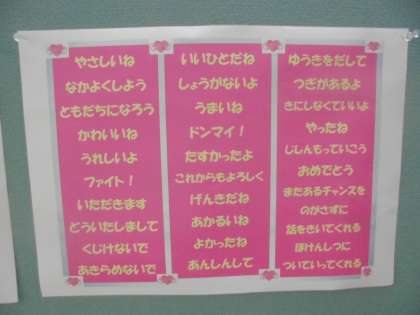 やさしいね
なかよくしよう
ともだちになろう
かわいいね
うれしいよ
ファイト！
いただきます
どういたしまして
くじけないで
あきらめないで
いいひとだね
しょうがないよ
うまいね
ドンマイ！
たすかったよ
これからもよろしく
げんきだね
あかるいね
よかったね
あんしんして
ゆうきをだして
つぎがあるよ
きにしなくていいよ
やったね
じしんもっていこう
おめでとう
まだあるチャンスを
のがさずに
話をきいてくれる
ほけんしつに
ついていってくれる